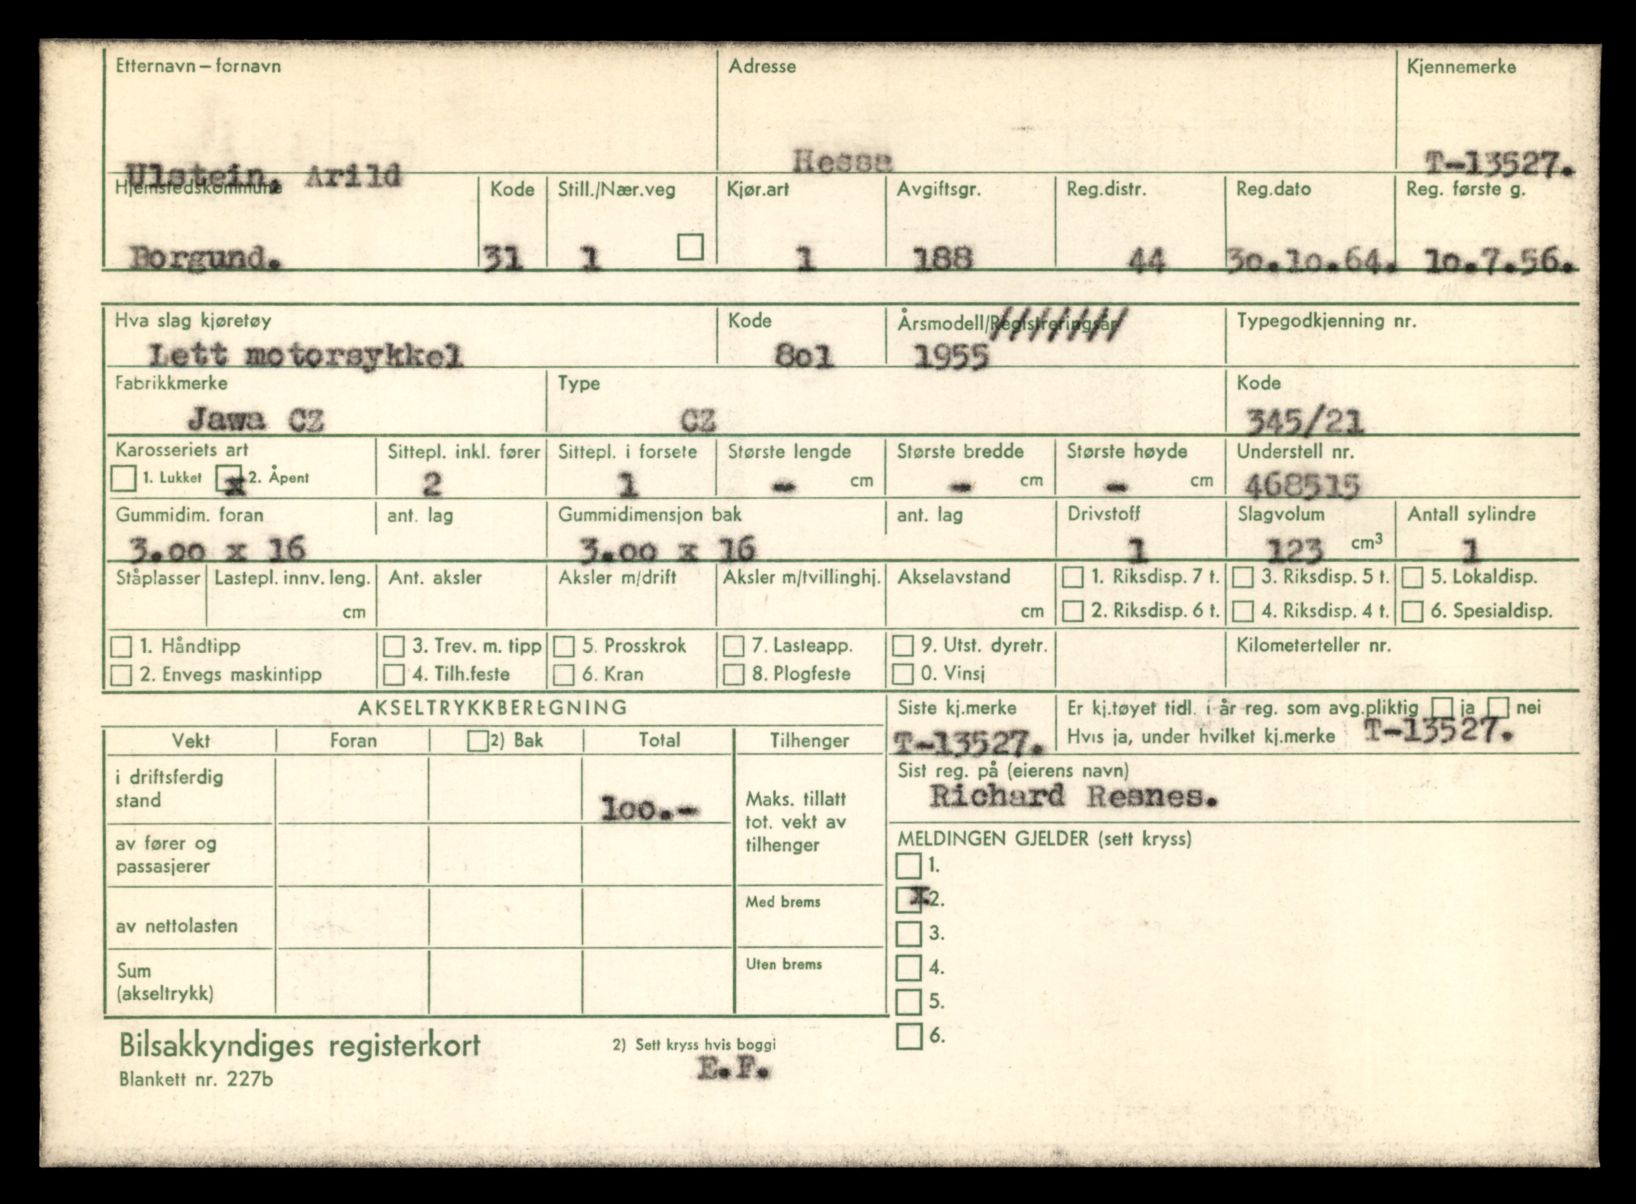 Etternavn – fornavn Adresse Kjennemerke
Ulstein, Arild Hessa T-13527.
Hjemstedskommune Kode Still./Nær.veg Kjør.art Avgiftsgr. Reg.distr. Reg.dato Reg. første g.
Borgund. 31 1 1 188 44 3o.1o.64. 1o.7.56.
Hva slag kjøretøy Kode Årsmodell/Registreringsår Typegodkjenning nr.
Lett motorsykkel 8o1 1955
Fabrikkmerke Type Kode
Jawa CZ CZ 345/21
Karosseriets art Sittepl. inkl. fører Sittepl. i forsete Største lengde Største bredde Største høyde Understell nr.
1. Lukket x 2. Åpent 2 1 - cm - cm - cm 468515
Gummidim. foran ant. lag Gummidimensjon bak ant. lag Drivstoff Slagvolum Antall sylindre
3.oo x 16 3.oo x 16 1 123 cm3 1
Ståplasser Lastepl. innv. leng. Ant. aksler Aksler m/drift Aksler m/tvillinghj. Akselavstand 1. Riksdisp. 7 t. 3. Riksdisp. 5 t. 5. Lokaldisp.
cm cm 2. Riksdisp. 6 t. 4. Riksdisp. 4 t. 6. Spesialdisp.
1. Håndtipp 3. Trev. m. tipp 5. Prosskrok 7. Lasteapp. 9. Utst. dyretr. Kilometerteller nr.
2. Envegs maskintipp 4. Tilh.feste 6. Kran 8. Plogfeste 0. Vinsj
AKSELTRYKKBEREGNING Siste kj.merke Er kj.tøyet tidl. i år reg. som avg.pliktig ja nei
Vekt Foran 2) Bak Total Tilhenger T-13527. Hvis ja, under hvilket kj.merke T-13527.
i driftsferdig
stand 1oo.-
Sist reg. på (eierens navn)
Richard Resnes.
Maks. tillatt
tot. vekt av
tilhenger
av fører og
passasjerer
MELDINGEN GJELDER (sett kryss)
1.
x 2.
3.
4.
5.
6.
Med brems
av nettolasten
Uten brems
Sum
(akseltrykk)
Bilsakkyndiges registerkort 2) Sett kryss hvis boggi
E.F.
Blankett nr. 227b